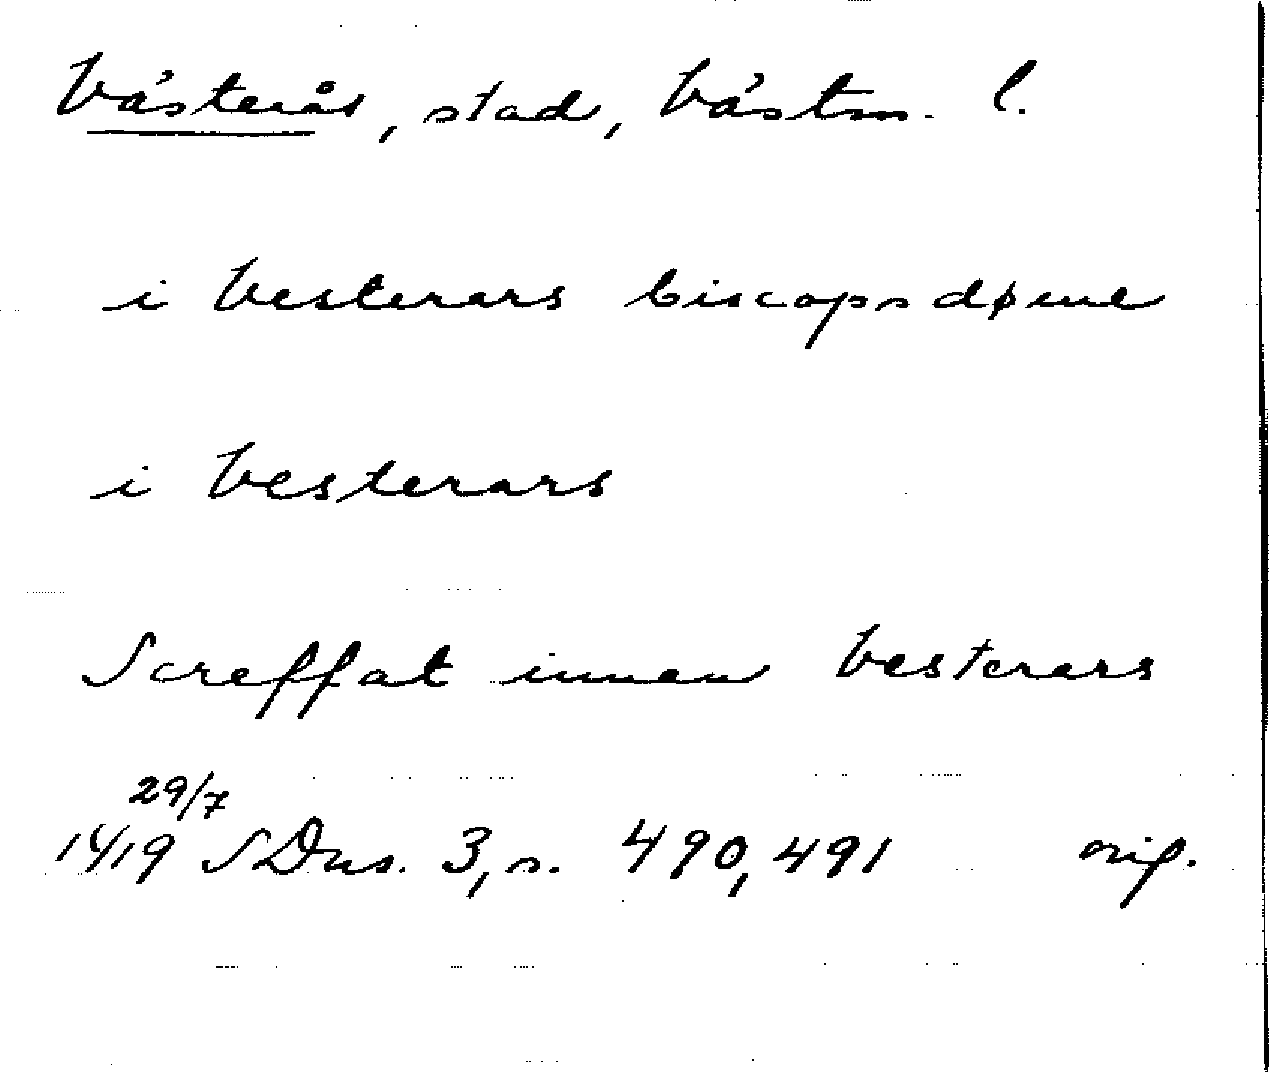 Västerås, stad, Västm. l.
i Vesterars biscops døme
i Vesterars
Screffat innen Vesterars
29/7
1419 SDns. 3, s. 490, 491 orig.